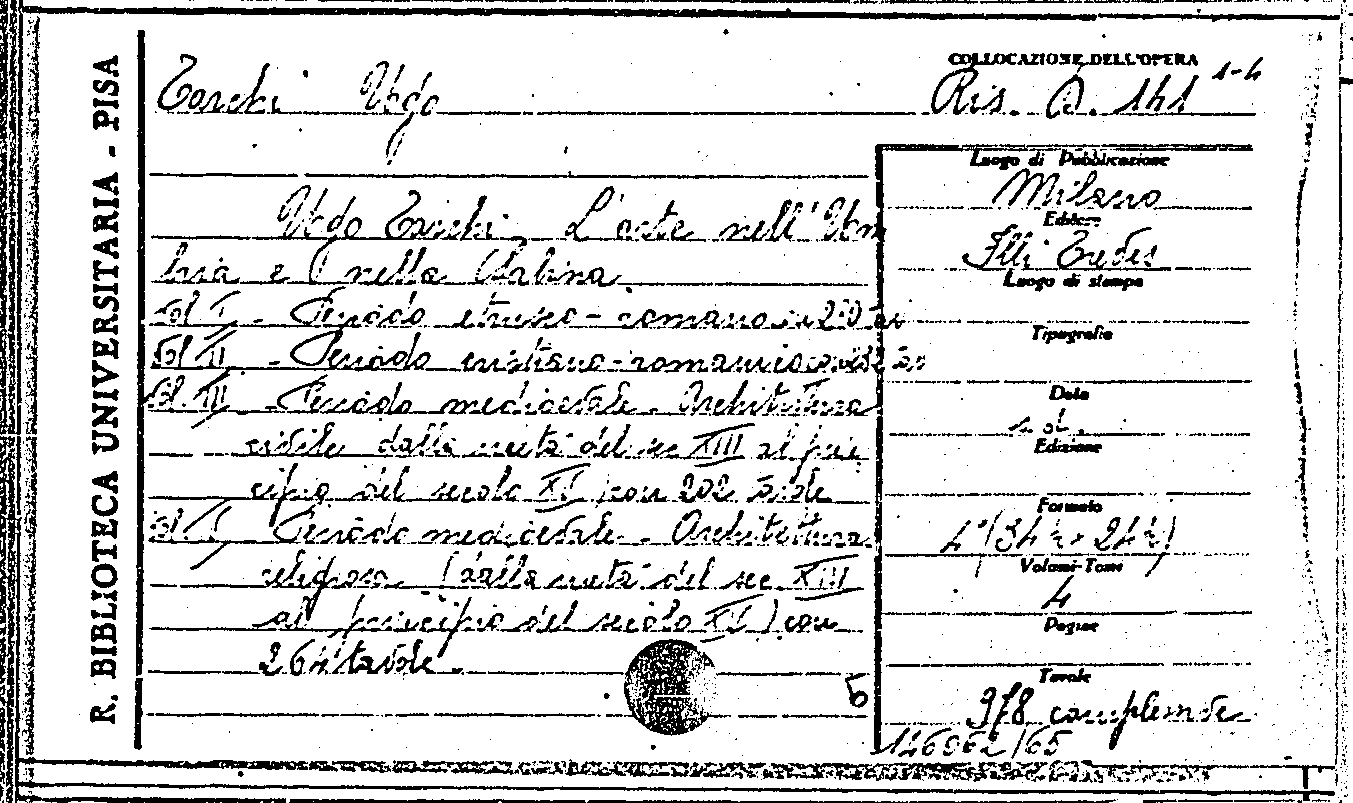 R. BIBLIOTECA UNIVERSITARIA - PISA
Tarchi Ugo
COLLOCAZIONE DELL'OPERA
Ris. D. 141 1-4
Ugo Tarchi. L'arte nell'Um
bria e nella Sabina.
Vol I. - Periodo etrusco-romano
Vol II - Periodo cristiano-romanico
Vol. III - Periodo medioevale. Architettura
civile dalla metà del sec XIII al prin
cipio del secolo XV) con 202 tavole
Vol - Periodo medioevale. Architettura
religiosa (dalla metà del sec XIII
al principio del secolo XV) con
264 tavole.
5
Luogo di Pubblicazione
Milano
Editore
F.lli Treves
Luogo di stampa
Tipografia
Data
s. d.
Edizione
Formato
4° (34½ × 24½)
Volumi-Tomi
4
Pagine
Tavole
978 complessive
126062/65